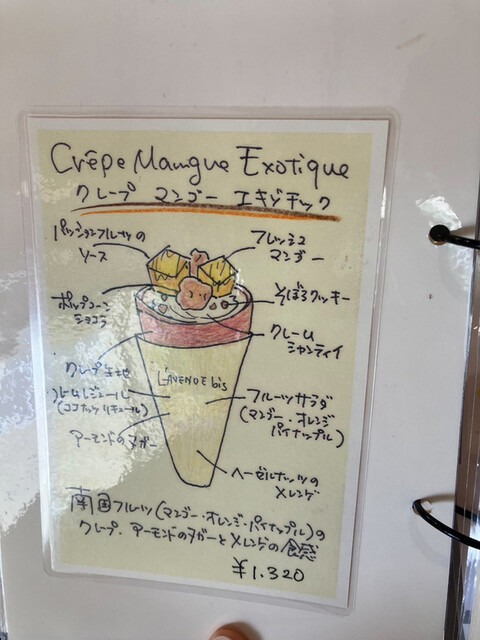 Crêpe Mangue Exotique
クレープ マンゴー エキゾチック
パッションフルーツの
ソース
フレッシュ
マンゴー
ポップコーン
ショコラ
そぼろクッキー
クレーム
シャンティイ
クレープ生地
L'AVENUE bis
クレームレジェール
(ココナッツリキュール)
フルーツサラダ
(マンゴー・オレンジ・
パイナップル)
アーモンドのヌガー
ヘーゼルナッツの
メレンゲ
南国フルーツ(マンゴー・オレンジ・パイナップル)の
クレープ. アーモンドのヌガーとメレンゲの食感
¥1.320